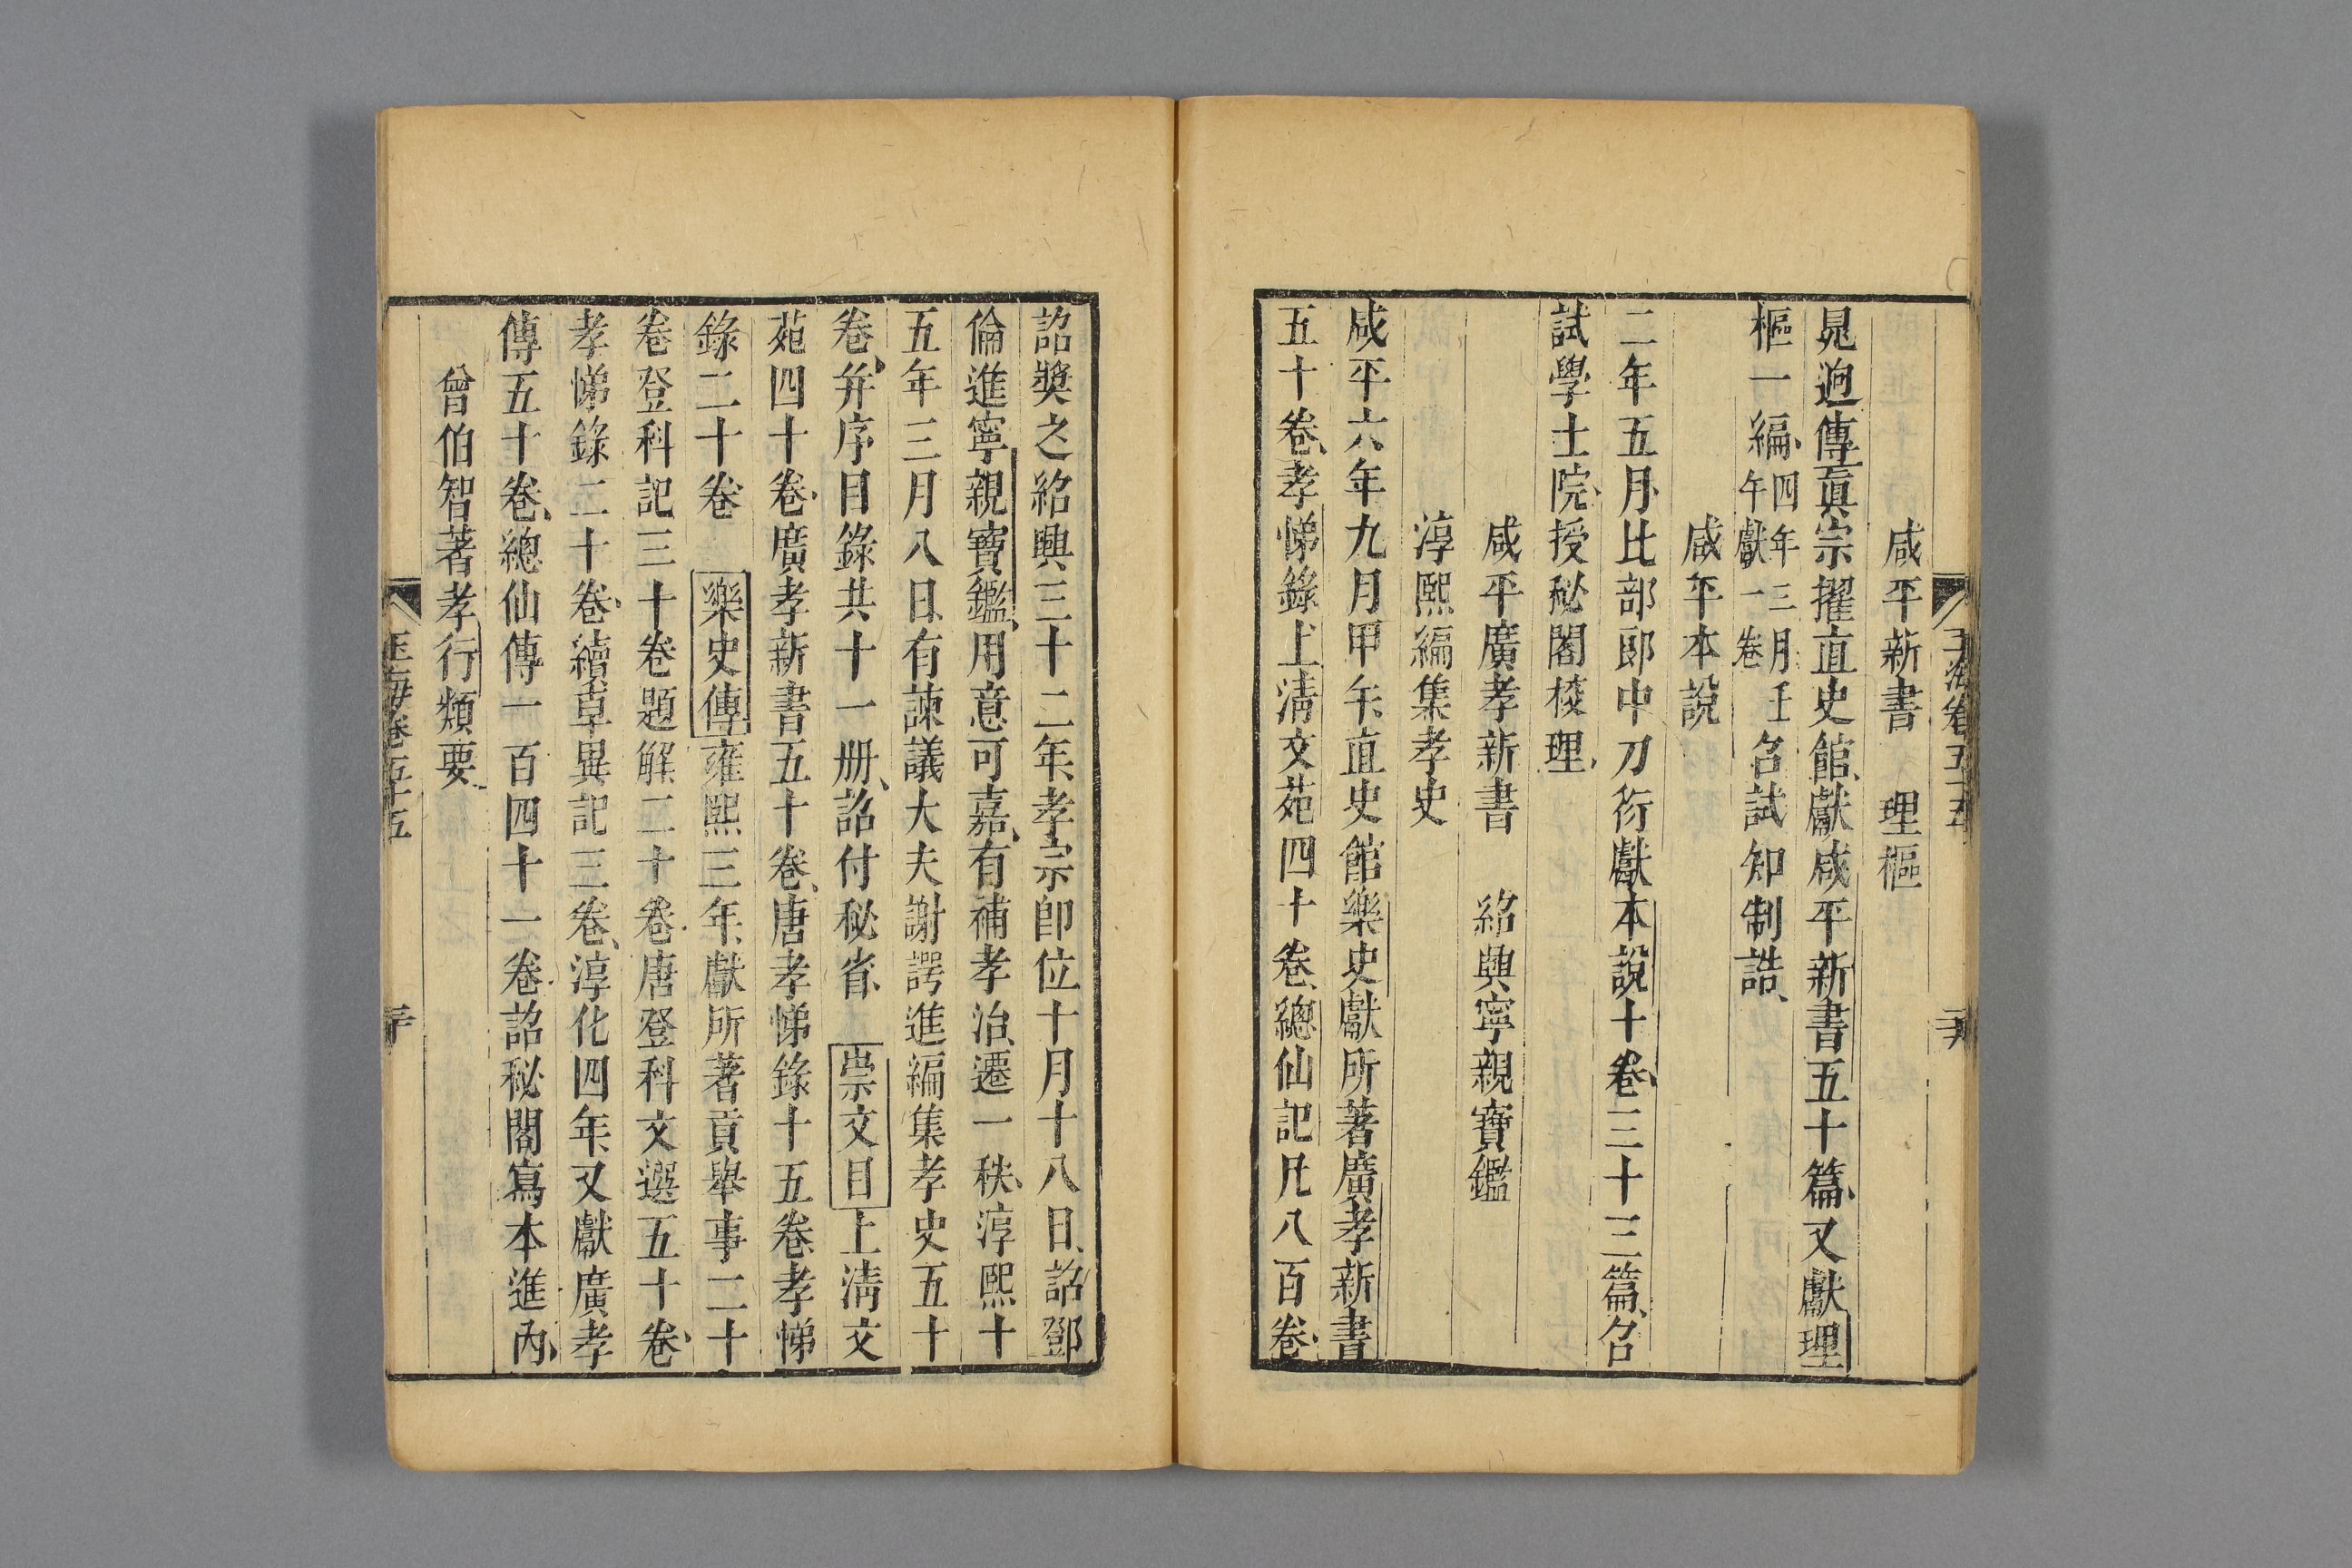 咸平新書　理樞
晁迥傳真宗擢直史館、獻咸平新書五十篇、又獻理
樞一編、四年三月壬午獻一卷召試知制誥、
咸平本說
二年五月、比部郎中刀衎獻本說十卷、三十三篇、召
試學士院、授秘閣校理、
咸平廣孝新書　紹興寧親寶鑑
淳熙編集孝史
咸平六年九月甲午、直史館樂史獻所著廣孝新書
五十卷、孝悌錄、上清文苑四十卷、總仙記、凡八百卷、
詔獎之、紹興三十二年、孝宗卽位、十月十八日、詔鄧
倫進寧親寶鑑、用意可嘉、有補孝治、遷一秩、淳熙十
五年三月八日、有諫議大夫謝諤進編集孝史五十
卷、并序目錄共十一册、詔付秘省、崇文目上清文
苑四十卷、廣孝新書五十卷、唐孝悌錄十五卷、孝悌
錄二十卷、樂史傳雍熙三年、獻所著貢舉事二十
卷、登科記三十卷、題解二十卷、唐登科文選五十卷、
孝悌錄二十卷、續卓異記三卷、淳化四年、又獻廣孝
傳五十卷、總仙傳一百四十一卷、詔秘閣寫本進內、
曾伯智著孝行類要、
玉海卷五十五
三十